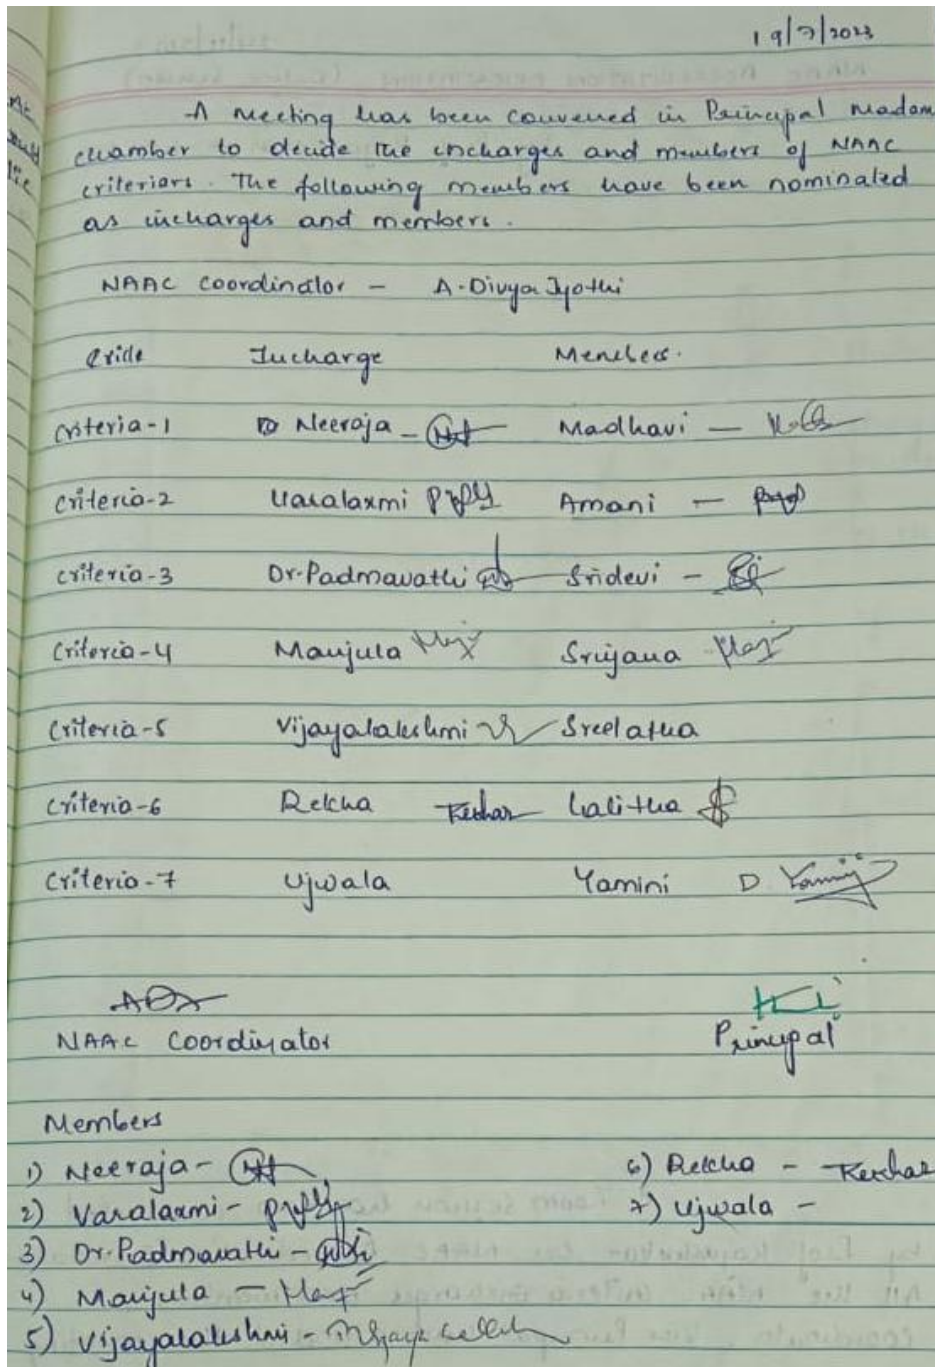 19/7/2023
A meeting has been convened in Principal madam
chamber to decide the incharges and members of NAAC
criteriars. The following members have been nominated
as incharges and members.
NAAC Coordinator - A. Divya Jyothi
Incharge Members.
Criteria-1 Neeraja - Madhavi -
Criteria-2 Varalaxmi Amani -
Criteria-3 Dr. Padmavathi Sridevi -
Criteria-4 Manjula Srijana
Criteria-5 Vijayalakshmi Sreelatha
Criteria-6 Rekha Lalitha
Criteria-7 Ujwala Yamini D. Yamini
NAAC Coordinator Principal
Members
1) Neeraja - 6) Rekha -
2) Varalaxmi - 7) Ujwala -
3) Dr. Padmavathi -
4) Manjula -
5) Vijayalakshmi -